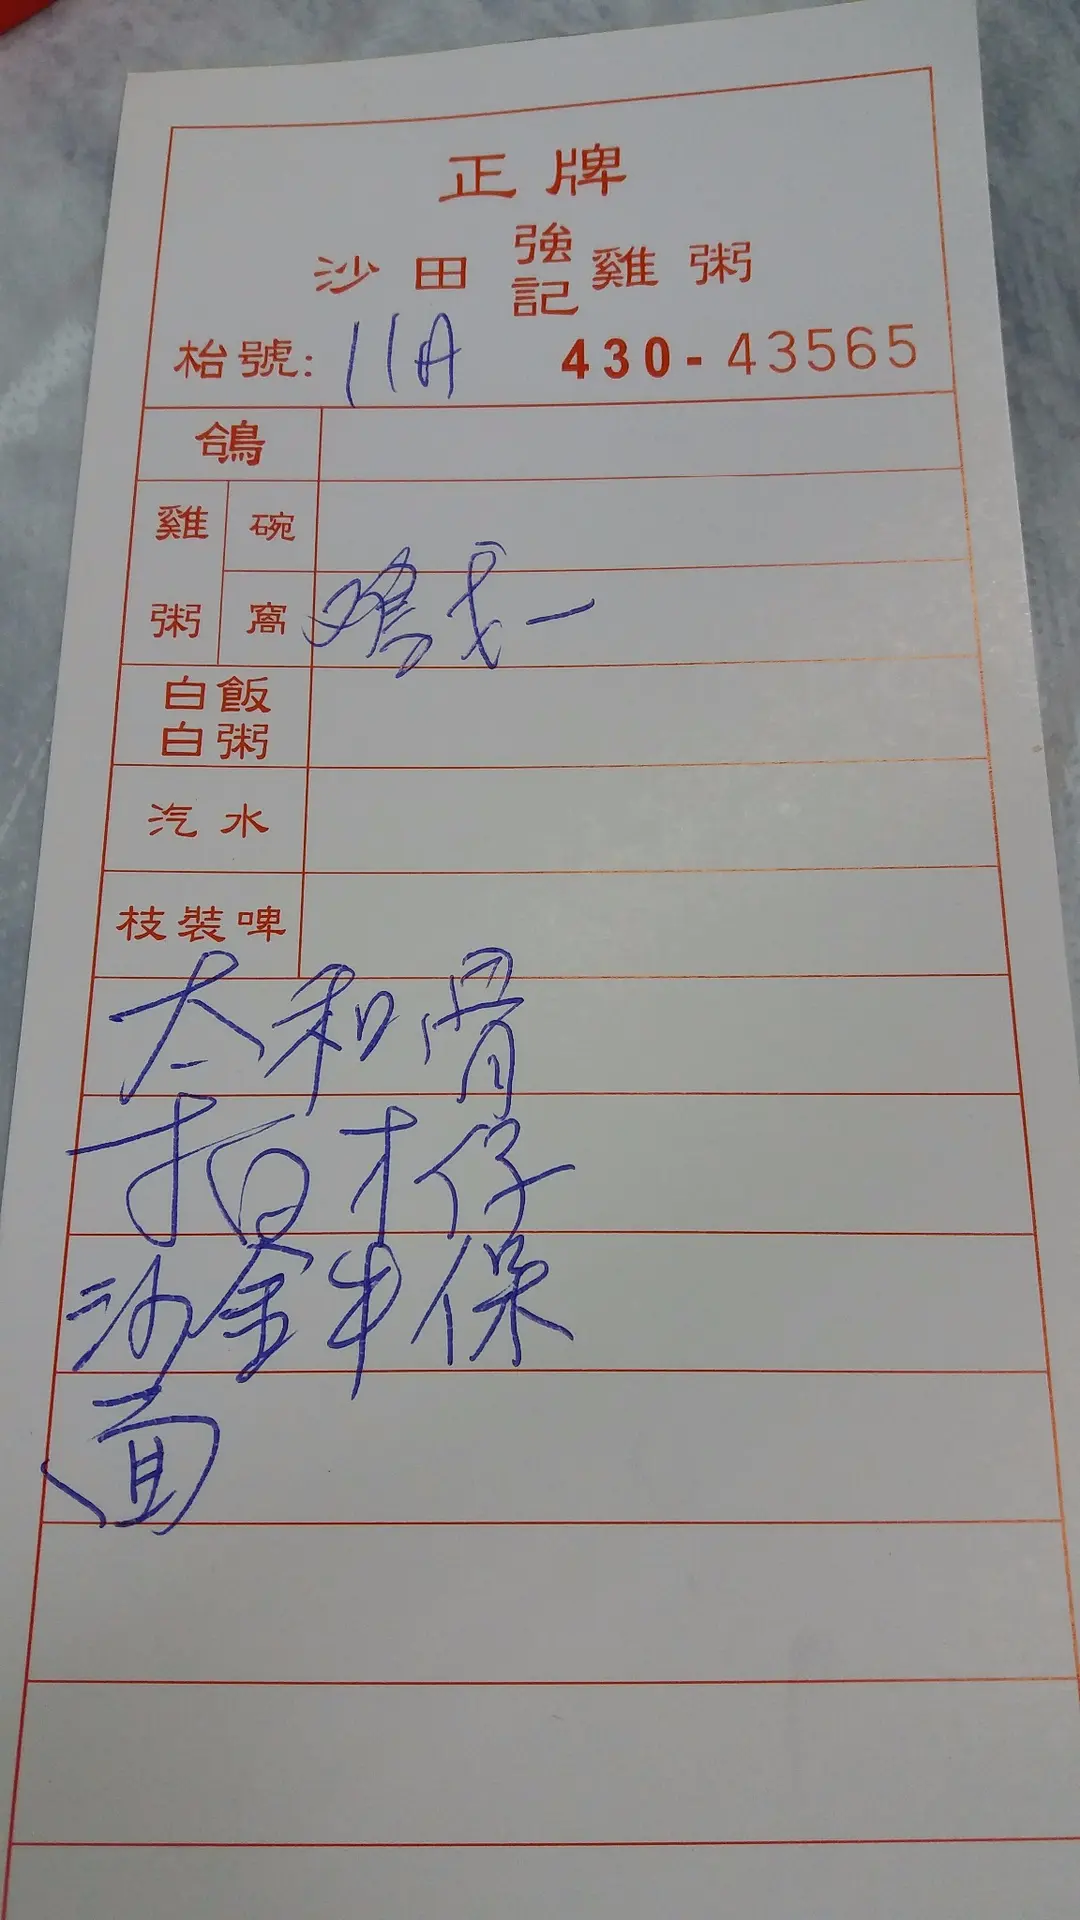 正牌
沙田強記雞粥
枱號: 11A 430-43565
鴿
雞粥 碗
窩
白飯
白粥
汽水
枝裝啤
太和骨
拍才仔
沙金牛保
面